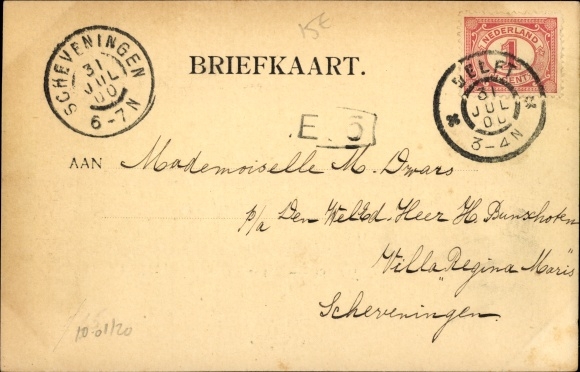 15E
SCHEVENINGEN
31
JUL
00
6-7N
BRIEFKAART.
NEDERLAND
1
CENT
DELFT
31
JUL
00
3-4N
E. 5
AAN Mademoiselle M. Dwars
p/a Den WelEd. Heer H. Bunschoten
Villa "Regina Maris"
Scheveningen.
10-01/20